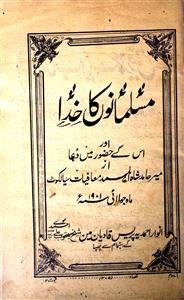 مسلمانوں کا خدا
اور
اس کے حضور میں دعا
از
میر حامد شاہ احمدی معافیات سیالکوٹ
ماہ جولائی ۱۹۰۱ء
انوار احمدیہ پریس قادیان میں
چھپا